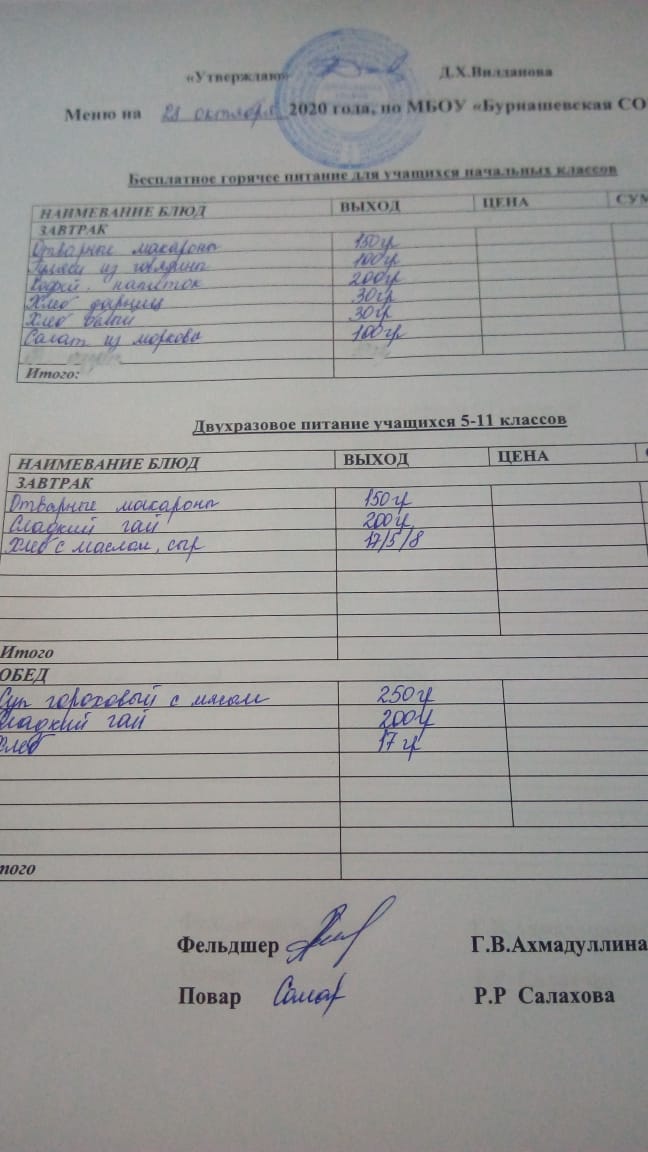 «Утверждаю» Д.Х.Вилданова
Меню на октября 2020 года, по МБОУ «Бурнашевская СО
Бесплатное горячее питание для учащихся начальных классов
НАИМЕВАНИЕ БЛЮД ВЫХОД ЦЕНА СУМ
ЗАВТРАК
Отварные макароны 150гр
из говядины 100гр
Кофей. напиток 200гр
Хлеб дарниц 30гр
Хлеб белый 30гр
Салат из моркови 100гр
Итого:
Двухразовое питание учащихся 5-11 классов
НАИМЕВАНИЕ БЛЮД ВЫХОД ЦЕНА
ЗАВТРАК
Отварные макароны 150гр
Сладкий чай 200гр
Хлеб с маслом, сыр 17/5/8
Итого
ОБЕД
Суп гороховый с мясом 250гр
Сладкий чай 200гр
Хлеб 17 гр
того
Фельдшер Г.В.Ахмадуллина
Повар Р.Р Салахова